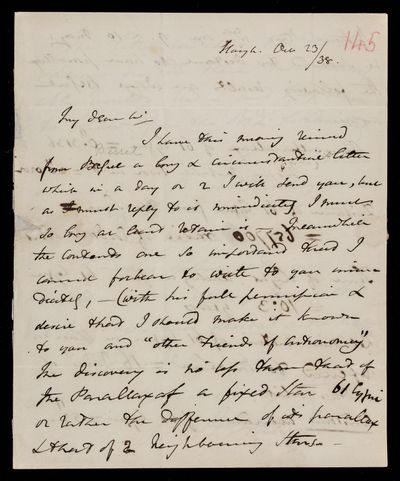 145
Slough. Oct 23/38.
My dear Sir
I have this morning received
from Bessel a long & circumstantial letter
which in a day or 2 I will send you, but
as I must reply to it immediately I must
so long at least retain it. Meanwhile
the contents are so important that I
cannot forbear to write to you imme-
diately, — (with his full permission &
desire that I should make it known
to you and "other Friends of astronomy"
The discovery is no less than that of
the Parallax of a fixed Star 61 Cygni
or rather the difference of its parallax
& that of 2 neighbouring Stars —